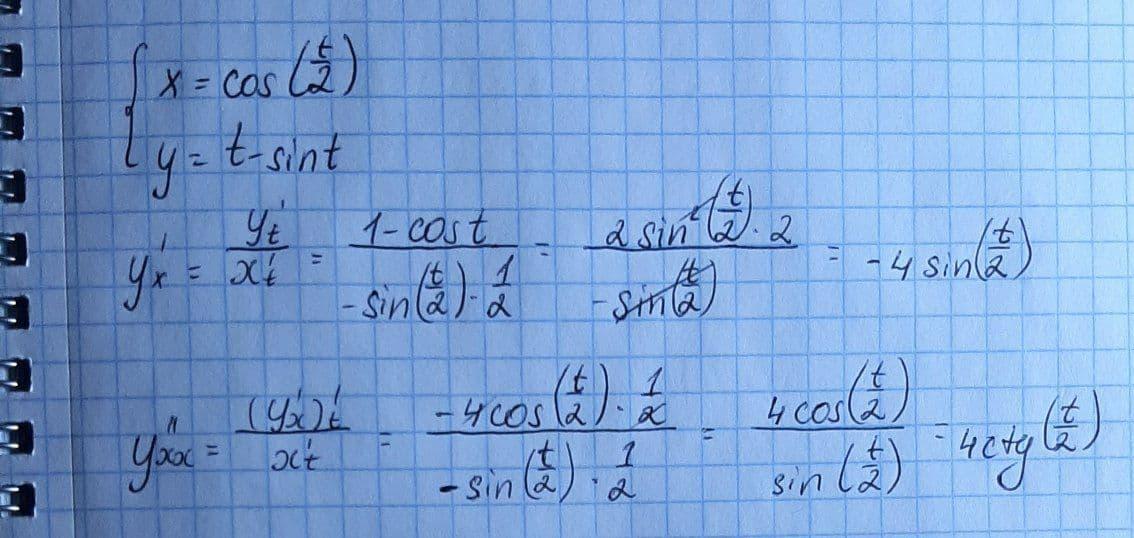 { x = cos(t/2)
y = t - sint
y'x = y't / x't = (1 - cost) / (-sin(t/2) · 1/2) = (2 sin²(t/2) · 2) / (-sin(t/2)) = -4 sin(t/2)
y''xx = (y'x)'t / x't = (-4cos(t/2) · 1/2) / (-sin(t/2) · 1/2) = 4cos(t/2) / sin(t/2) = 4ctg(t/2)